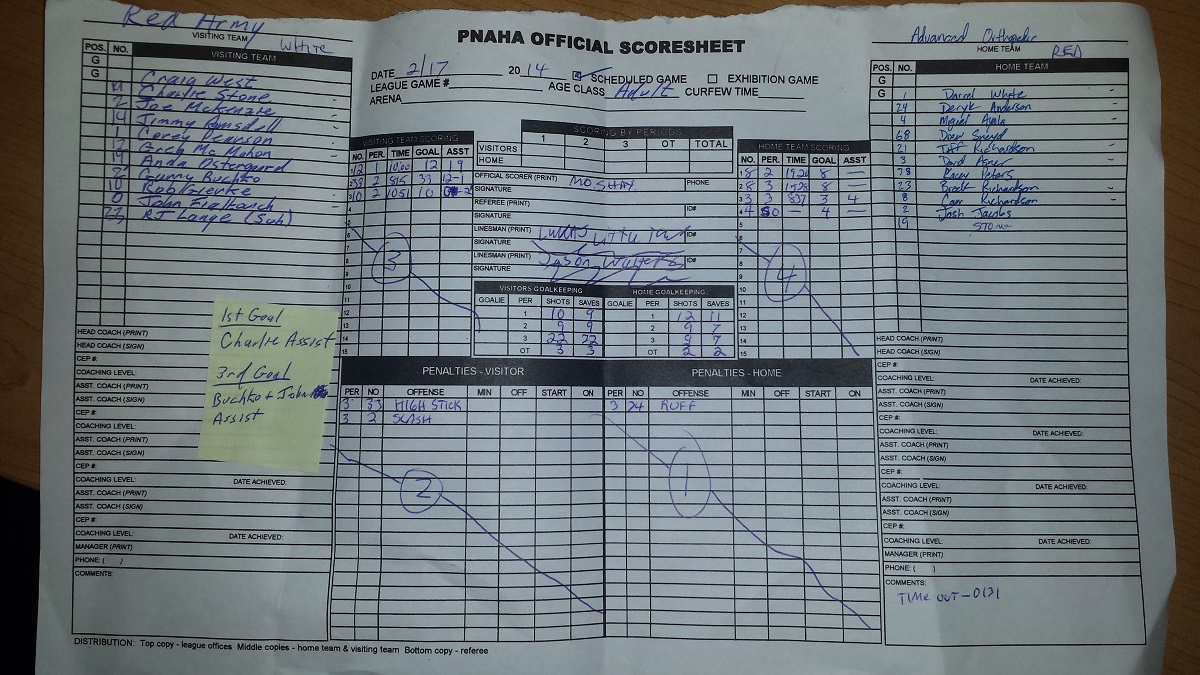 Red Army
VISITING TEAM
White
PNAHA OFFICIAL SCORESHEET
Advanced
HOME TEAM
RED
DATE 2/17 2014 SCHEDULED GAME EXHIBITION GAME
LEAGUE GAME# AGE CLASS Adult CURFEW TIME
ARENA
POS. NO. VISITING TEAM
G
G
Craig West
Charlie Stone
2 Joe McKenzie
14 Jimmy Ramsdell
1 Corey Pearson
12 Arch McMahon
19 Anda Ostergard
Gunny Buchko
10 Rob
0 John
RJ Lange (Sub)
VISITING TEAM SCORING
NO. PER. TIME GOAL ASST
1 12 1 1000 12 19
2 33 2 815 33 12-1
3 10 2 1051 10
4
5
6
7
8
9
10
11
12
13
14
15
3
SCORING BY PERIODS
1 2 3 OT TOTAL
VISITORS
HOME
OFFICIAL SCORER (PRINT) MO SHAY PHONE
SIGNATURE
REFEREE (PRINT)
SIGNATURE ID#
LINESMAN (PRINT)
SIGNATURE ID#
LINESMAN (PRINT) Jason Wolters
SIGNATURE ID#
VISITORS GOALKEEPING
GOALIE PER SHOTS SAVES
1 10 9
2 9 9
3 22 22
OT 3 3
HOME GOALKEEPING
GOALIE PER SHOTS SAVES
1 12 11
2 9 7
3 9 7
OT 2 2
HOME TEAM SCORING
NO. PER. TIME GOAL ASST
1 8 2 1920 8 —
2 8 3 1528 8 —
3 3 3 837 3 4
4 4 SO — 4 —
5
6
7
8
9
10
11
12
13
14
15
4
POS. NO. HOME TEAM
G
G 1 Darrel White
24 Deryk Anderson
4 Miguel Ayala
68 Drew
21 Jeff Richardson
3 Tord Asner
78 Kacey Peters
23 Brock Richardson
8 Cam Richardson
2 Josh Jacobs
19 Stone
1st Goal
Charlie Assist
3rd Goal
Buchko + John
Assist
HEAD COACH (PRINT)
HEAD COACH (SIGN)
CEP #:
COACHING LEVEL:
ASST. COACH (PRINT)
ASST. COACH (SIGN)
CEP #:
COACHING LEVEL:
ASST. COACH (PRINT)
ASST. COACH (SIGN)
CEP #:
COACHING LEVEL: DATE ACHIEVED:
ASST. COACH (PRINT)
ASST. COACH (SIGN)
CEP #:
COACHING LEVEL: DATE ACHIEVED:
MANAGER (PRINT)
PHONE: ( )
COMMENTS:
PENALTIES - VISITOR
PER NO OFFENSE MIN OFF START ON
3 33 HIGH STICK
3 2 SLASH
2
PENALTIES - HOME
PER NO OFFENSE MIN OFF START ON
3 24 RUFF
1
HEAD COACH (PRINT)
HEAD COACH (SIGN)
CEP #:
COACHING LEVEL: DATE ACHIEVED:
ASST. COACH (PRINT)
ASST. COACH (SIGN)
CEP #:
COACHING LEVEL: DATE ACHIEVED:
ASST. COACH (PRINT)
ASST. COACH (SIGN)
CEP #:
COACHING LEVEL: DATE ACHIEVED:
ASST. COACH (PRINT)
ASST. COACH (SIGN)
CEP #:
COACHING LEVEL: DATE ACHIEVED:
MANAGER (PRINT)
PHONE: ( )
COMMENTS:
TIME OUT - 0131
DISTRIBUTION: Top copy - league offices Middle copies - home team & visiting team Bottom copy - referee